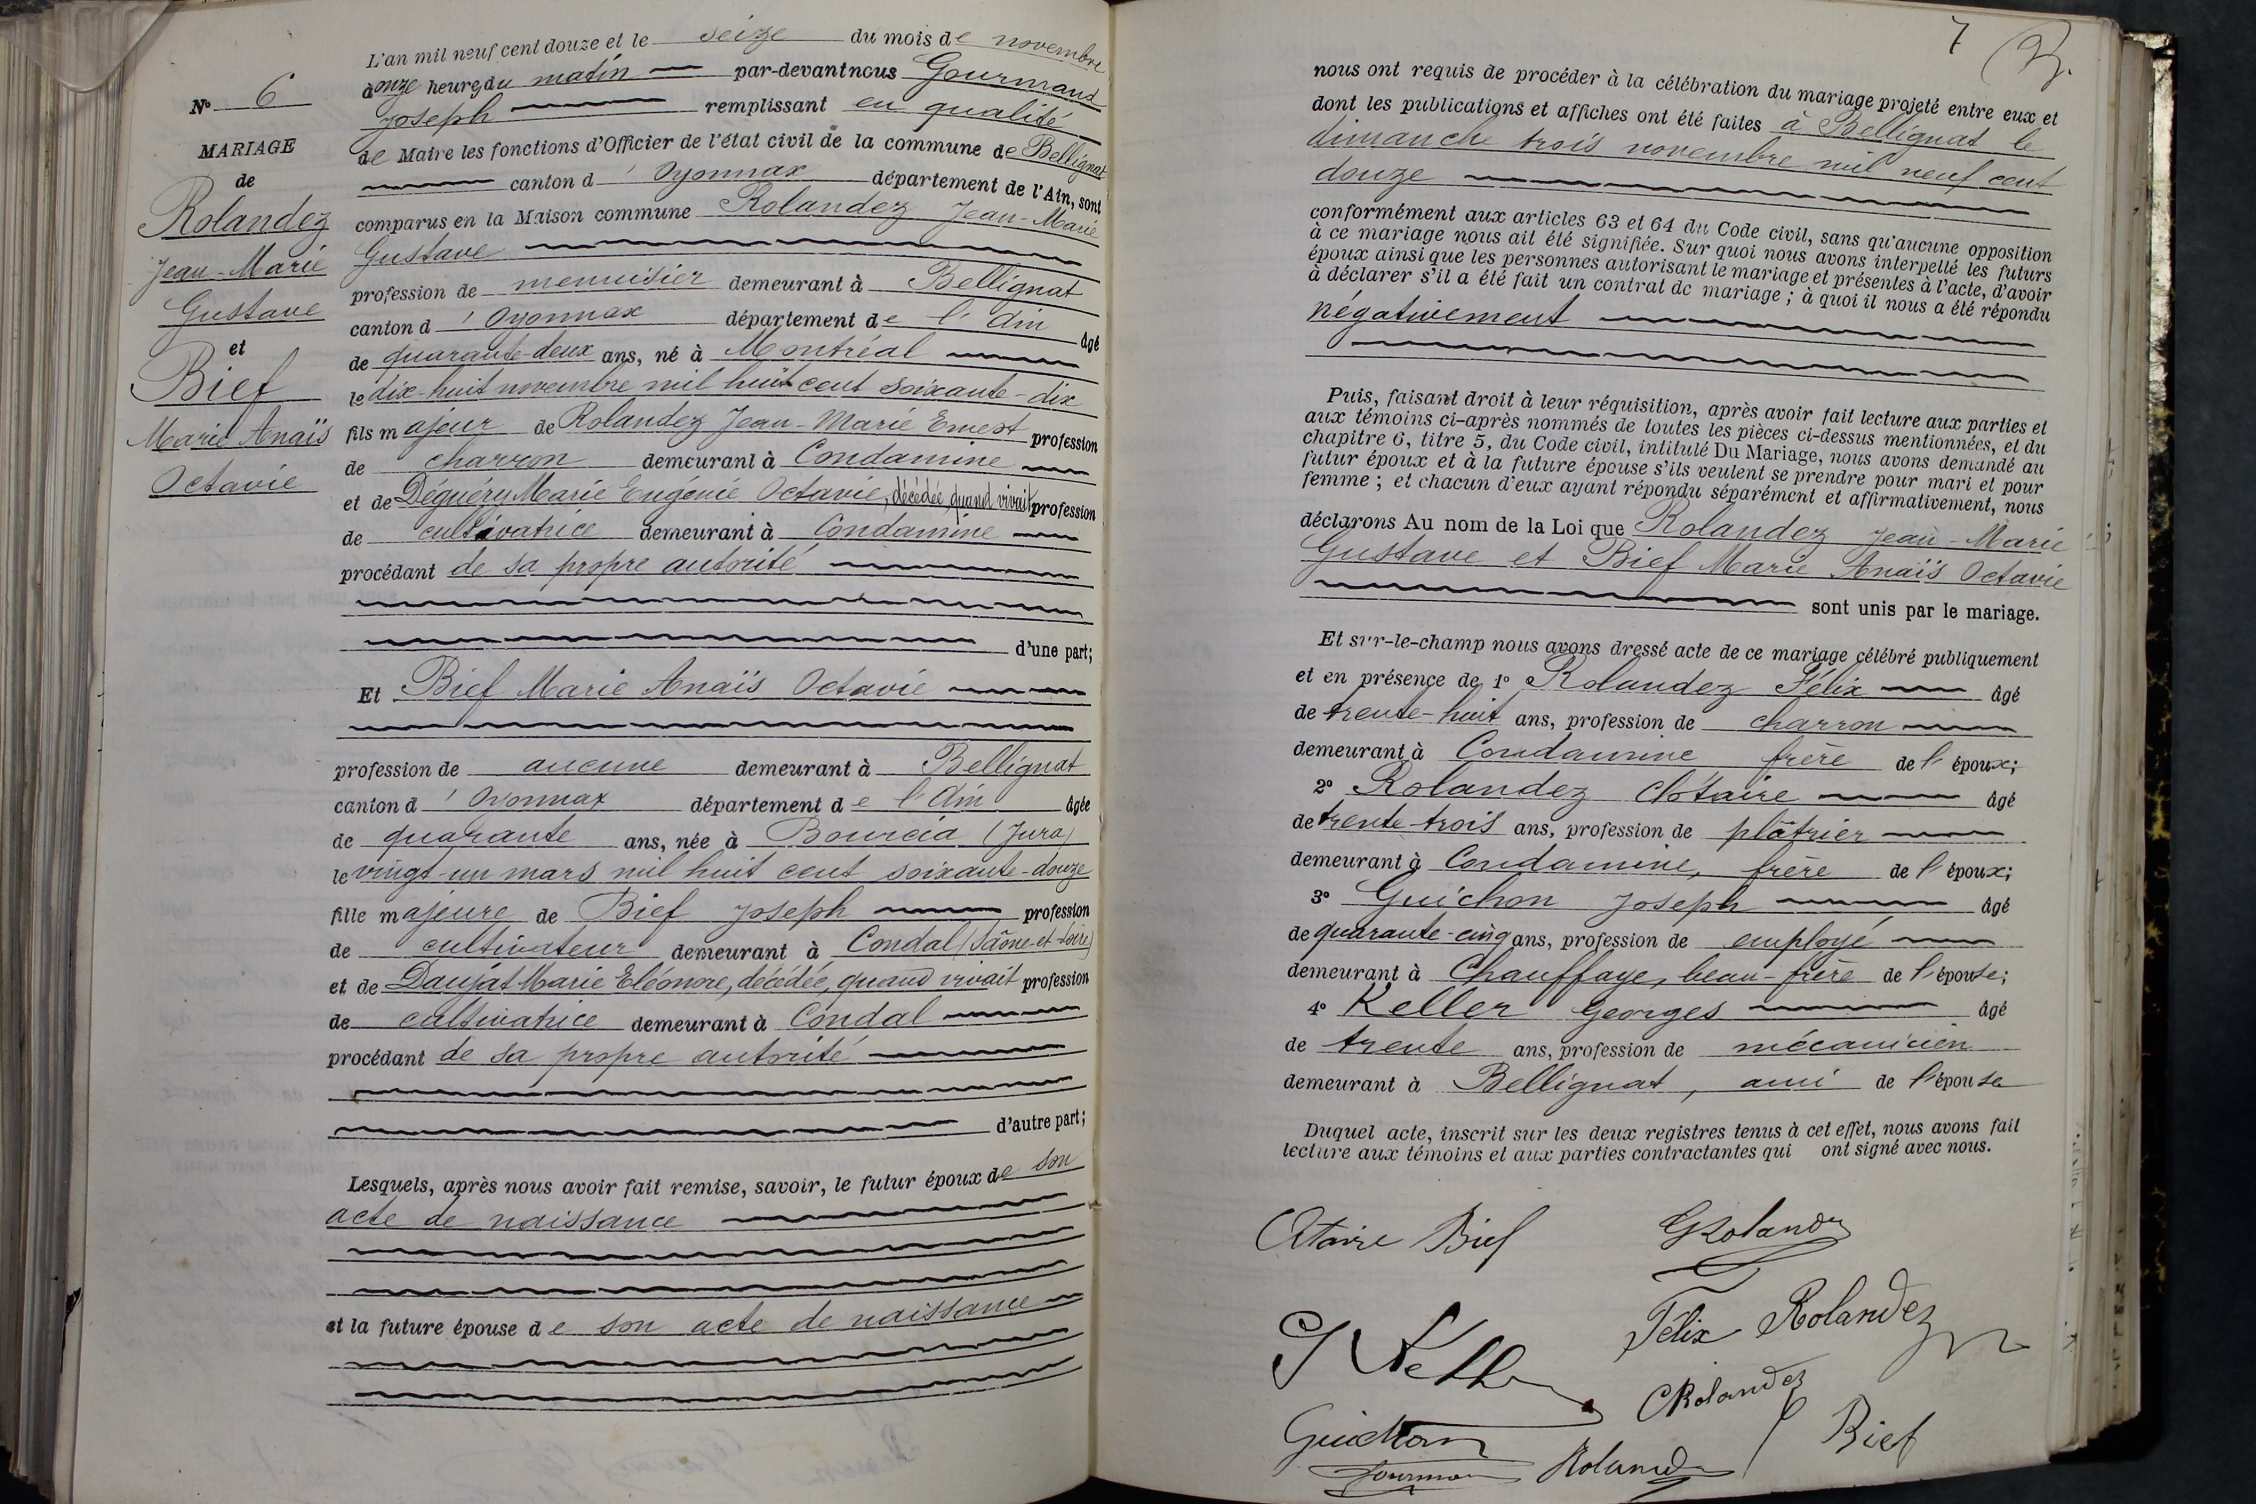 L'an mil neuf cent douze et le seize du mois de novembre
à onze heures du matin par-devant nous Gourmand
Joseph remplissant en qualité
de Maire les fonctions d'Officier de l'état civil de la commune de Bellignat
canton d'Oyonnax département de l'Ain, sont
comparus en la Maison commune Rolandez Jean-Marie
Gustave
profession de menuisier demeurant à Bellignat
canton d'Oyonnax département de l'Ain âgé
de quarante-deux ans, né à Montréal
le dix-huit novembre mil huit cent soixante-dix
fils majeur de Rolandez Jean-Marie Ernest profession
de charron demeurant à Condamine
et de Déguéry Marie Eugénie Octavie, décédée, quand vivait profession
de cultivatrice demeurant à Condamine
procédant de sa propre autorité
d'une part;
Et Bief Marie Anaïs Octavie
profession de aucune demeurant à Bellignat
canton d'Oyonnax département de l'Ain âgée
de quarante ans, née à Bourcia (Jura)
le vingt-un mars mil huit cent soixante-douze
fille majeure de Bief Joseph profession
de cultivateur demeurant à Condal (Saône-et-Loire)
et de Daujat Marie Eléonore, décédée, quand vivait profession
de cultivatrice demeurant à Condal
procédant de sa propre autorité
d'autre part;
Lesquels, après nous avoir fait remise, savoir, le futur époux de son
acte de naissance
et la future épouse de son acte de naissance
N° 6
MARIAGE
de
Rolandez
Jean-Marie
Gustave
et
Bief
Marie Anaïs
Octavie
7
nous ont requis de procéder à la célébration du mariage projeté entre eux et
dont les publications et affiches ont été faites à Bellignat le
dimanche trois novembre mil neuf cent
douze
conformément aux articles 63 et 64 du Code civil, sans qu'aucune opposition
à ce mariage nous ait été signifiée. Sur quoi nous avons interpellé les futurs
époux ainsi que les personnes autorisant le mariage et présentes à l'acte, d'avoir
à déclarer s'il a été fait un contrat de mariage; à quoi il nous a été répondu
négativement
Puis, faisant droit à leur réquisition, après avoir fait lecture aux parties et
aux témoins ci-après nommés de toutes les pièces ci-dessus mentionnées, et du
chapitre 6, titre 5, du Code civil, intitulé Du Mariage, nous avons demandé au
futur époux et à la future épouse s'ils veulent se prendre pour mari et pour
femme; et chacun d'eux ayant répondu séparément et affirmativement, nous
déclarons Au nom de la Loi que Rolandez Jean-Marie
Gustave et Bief Marie Anaïs Octavie
sont unis par le mariage.
Et sur-le-champ nous avons dressé acte de ce mariage célébré publiquement
et en présence de 1° Rolandez Félix âgé
de trente-huit ans, profession de charron
demeurant à Condamine frère de l'époux;
2° Rolandez Clotaire âgé
de trente-trois ans, profession de plâtrier
demeurant à Condamine, frère de l'époux;
3° Guichon Joseph âgé
de quarante-cinq ans, profession de employé
demeurant à Chauffaye, beau-frère de l'épouse;
4° Keller Georges âgé
de trente ans, profession de mécanicien
demeurant à Bellignat, ami de l'épouse
Duquel acte, inscrit sur les deux registres tenus à cet effet, nous avons fait
lecture aux témoins et aux parties contractantes qui ont signé avec nous.
Bief GRolandez
Félix Rolandez
G Keller
CRolandez
Guichon Bief
Gourmand Rolandez